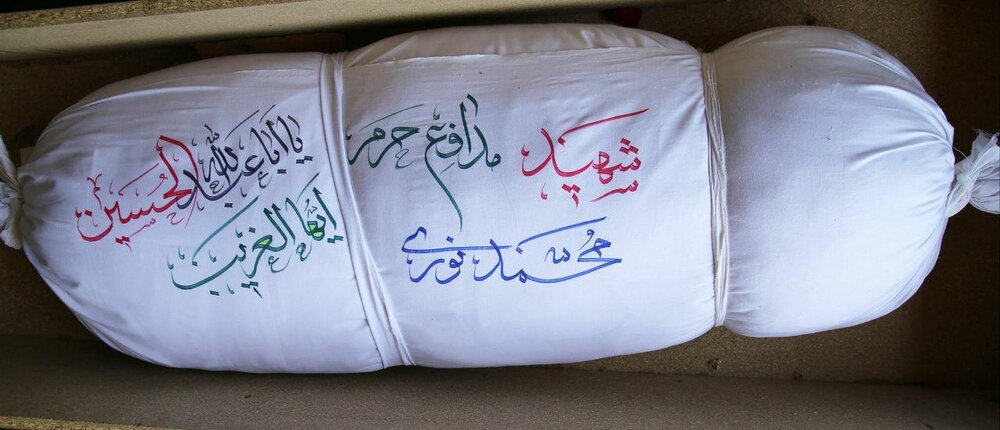 شهید مدافع حرم
محمد نوری
یا اباعبدالله الحسین
ایها الغریب